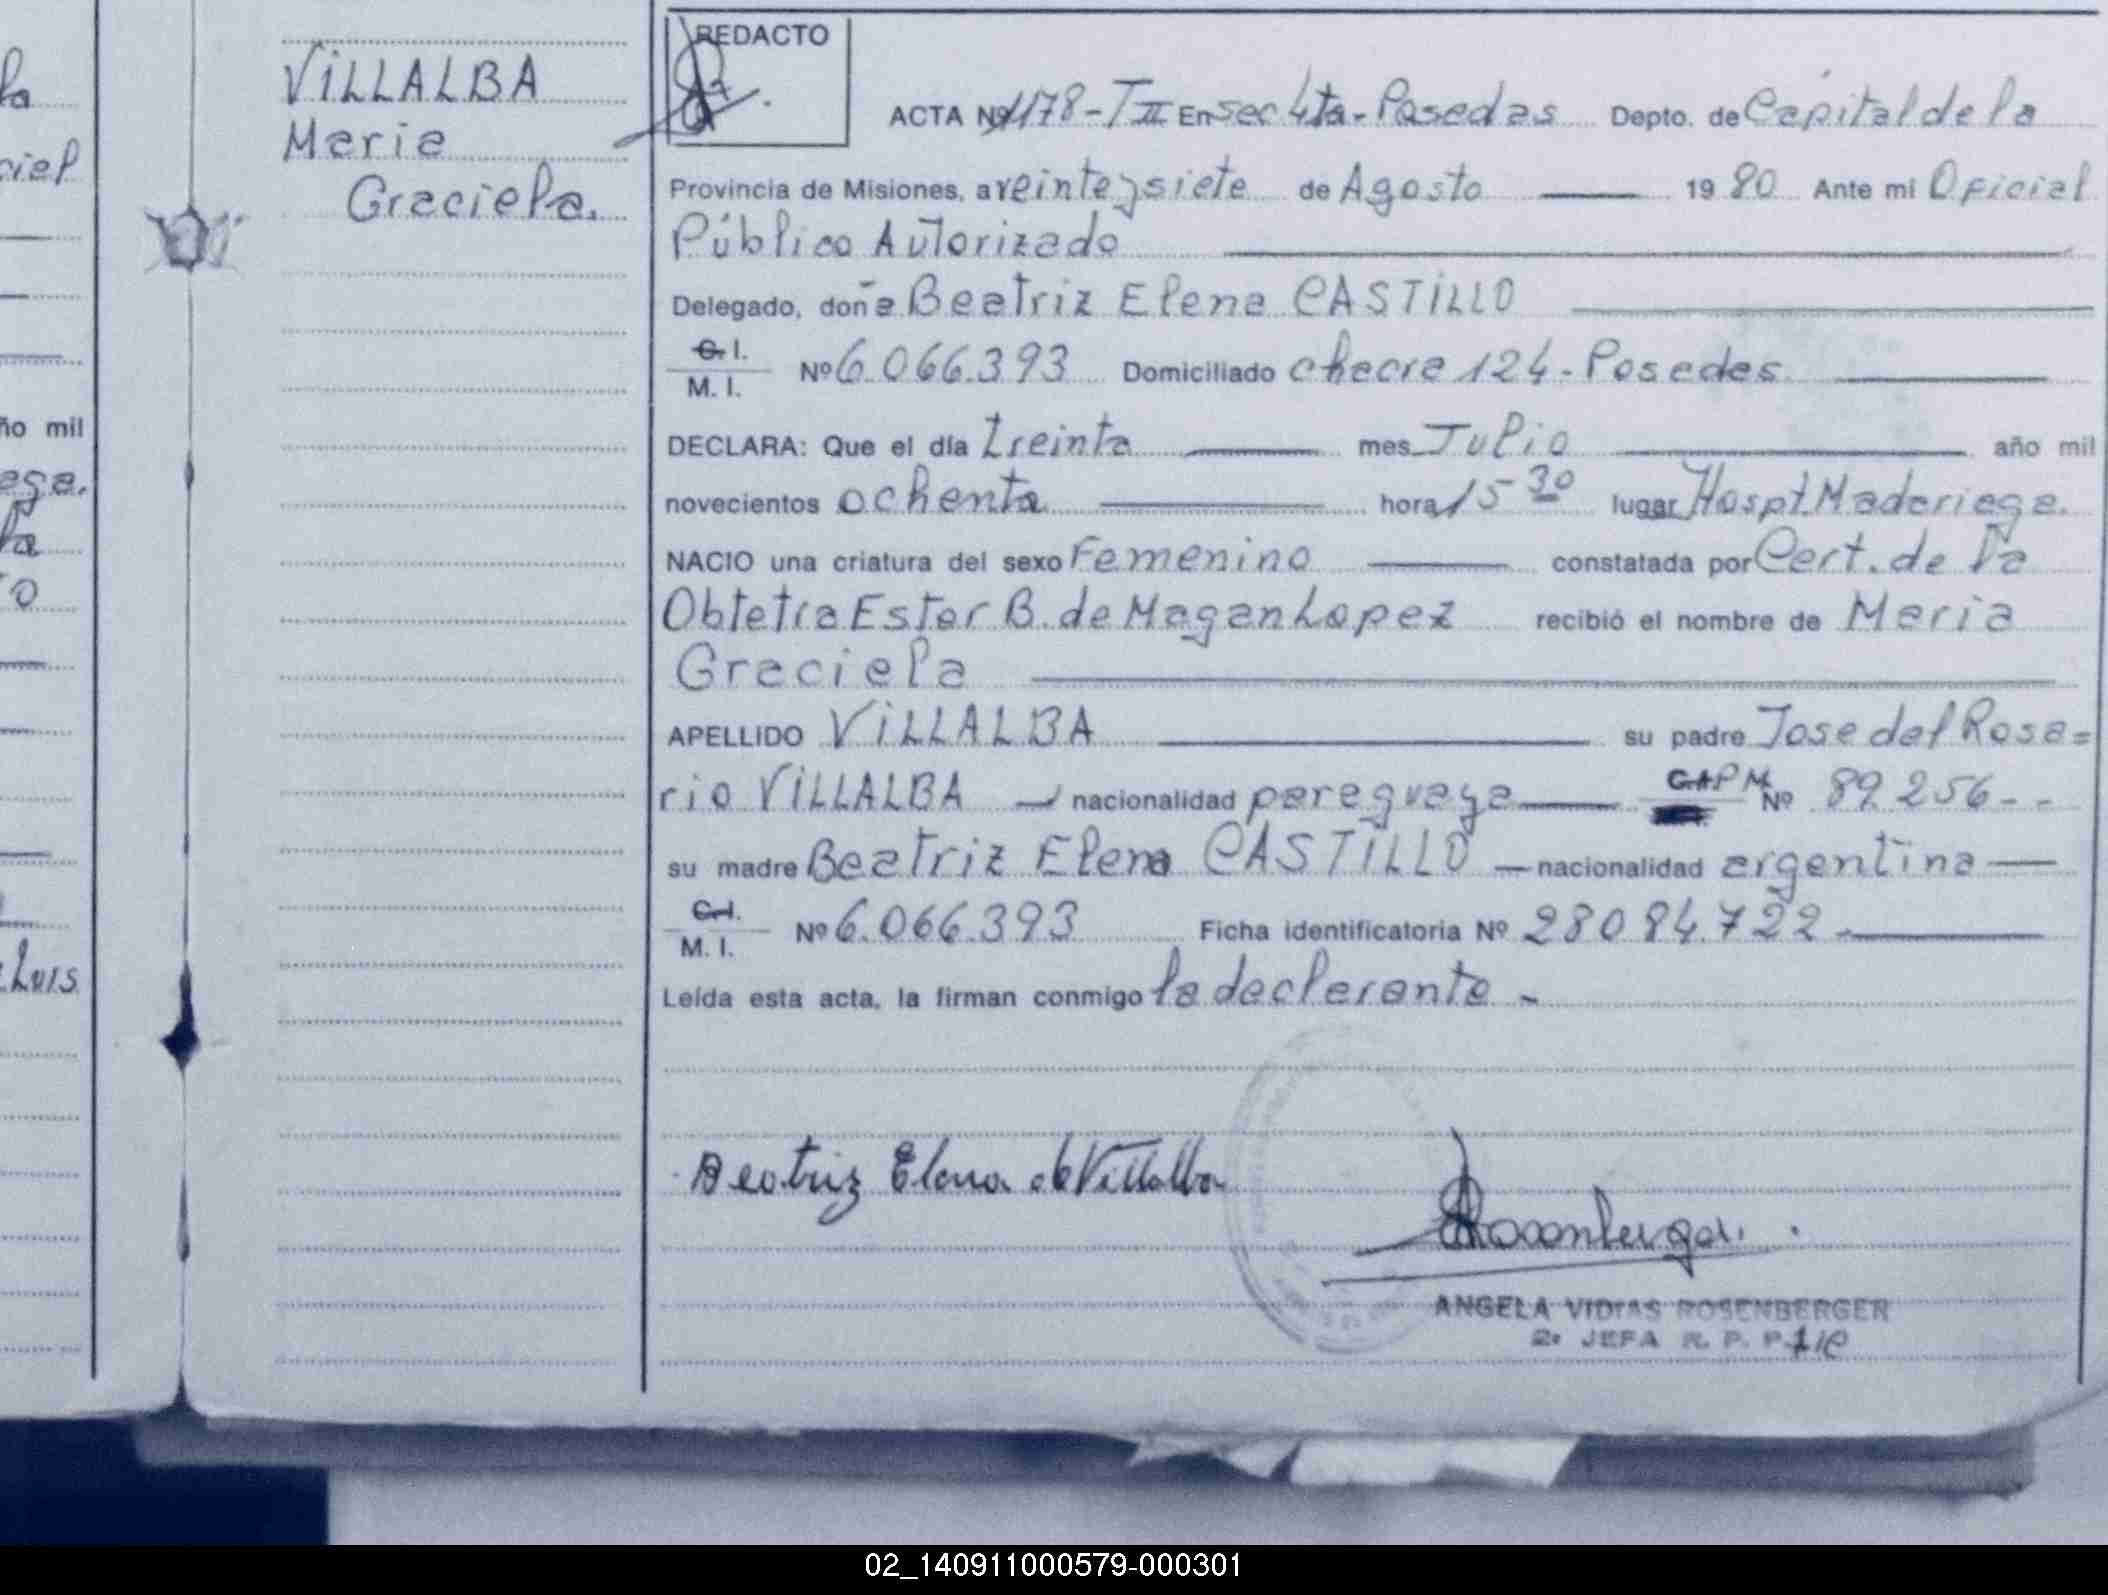 la
ciel
ño mil
ega.
la
o
Luis
VILLALBA
Maria
Graciela.
REDACTO
ACTA Nº 1178 - T II En Sec 4ta - Posadas Depto. de Capital de la
Provincia de Misiones, a veinteysiete de Agosto 19 80 Ante mi Oficial
Público Autorizado
Delegado, doña Beatriz Elena CASTILLO
C. I.
M. I. Nº 6.066.393 Domiciliado chacra 124 - Posadas
DECLARA: Que el día treinta mes Julio año mil
novecientos ochenta hora 15 30 lugar Hospt. Madariaga.
NACIO una criatura del sexo Femenino constatada por Cert. de la
Obtetra Ester B. de Magan Lopez recibió el nombre de Maria
Graciela
APELLIDO VILLALBA su padre Jose del Rosa=
rio VILLALBA nacionalidad paraguaya C.I. P M. Nº 89.256 - -
su madre Beatriz Elena CASTILLO - nacionalidad argentina
C.I.
M. I. Nº 6.066.393 Ficha identificatoria Nº 28084.722 -
Leída esta acta, la firman conmigo la declarante -
Beatriz Elena de Villalba
Rosenberger.
ANGELA VIDIAS ROSENBERGER
2º JEFA R. P. P.
02_140911000579-000301